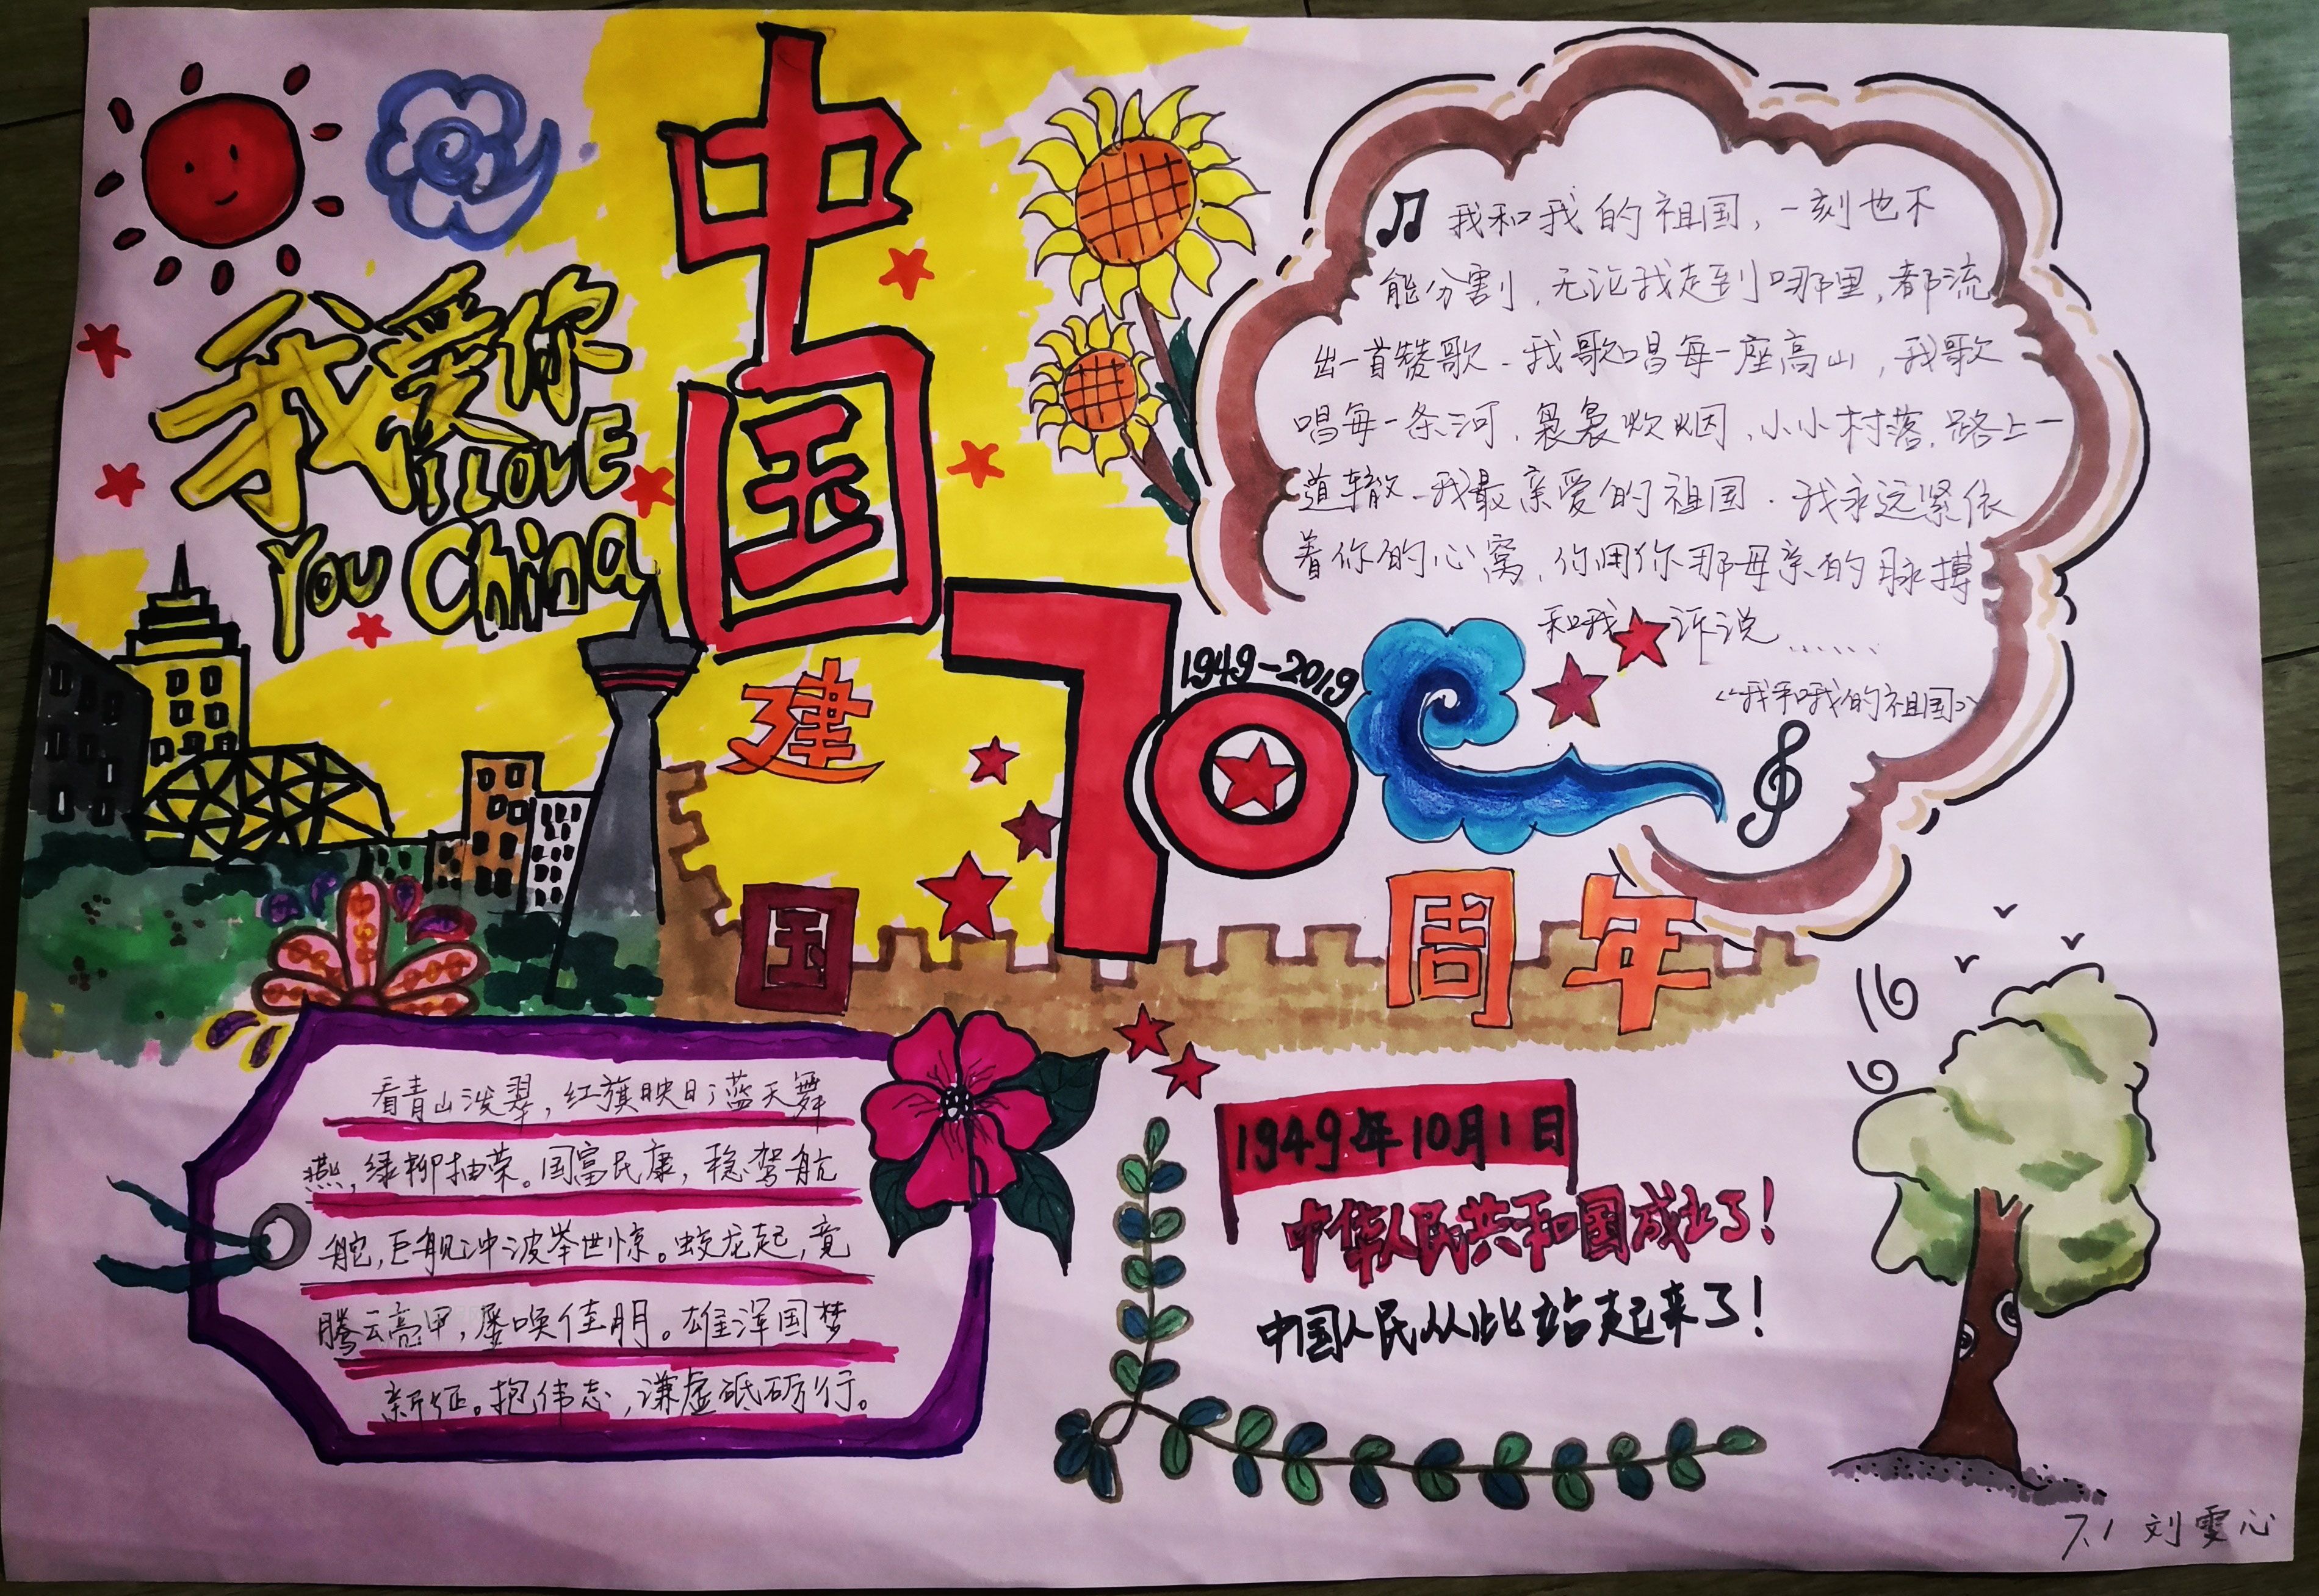 我爱你
I LOVE
You China
中国
建国
70
周年
1949-2019
我和我的祖国,一刻也不
能分割,无论我走到哪里,都流
出一首赞歌.我歌唱每一座高山,我歌
唱每一条河,袅袅炊烟,小小村落,路上一
道辙.我最亲爱的祖国.我永远紧依
着你的心窝,你用你那母亲的脉搏
和我诉说......
《我和我的祖国》
看青山泼翠,红旗映日;蓝天舞
燕,绿柳抽荣。国富民康,稳驾航
舵,巨舰冲波举世惊。蛟龙起,竟
腾云高甲,屡唤佳朋。雄浑国梦
新征。抱伟志,谦虚砥砺行。
1949年10月1日
中华人民共和国成立了!
中国人民从此站起来了!
7.1 刘雯心